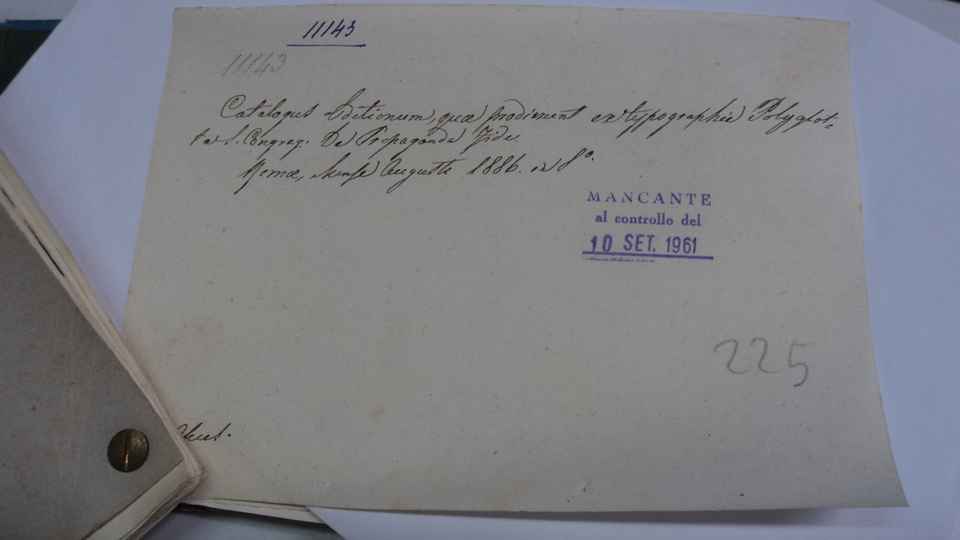 11143
11143
Catalogus Editionum, quæ prodierunt ex typographia Polyglot-
ta S. Congreg. De Propaganda Fide.
Romæ, Mense Augusti 1886. in 8°.
MANCANTE
al controllo del
10 SET. 1961
225